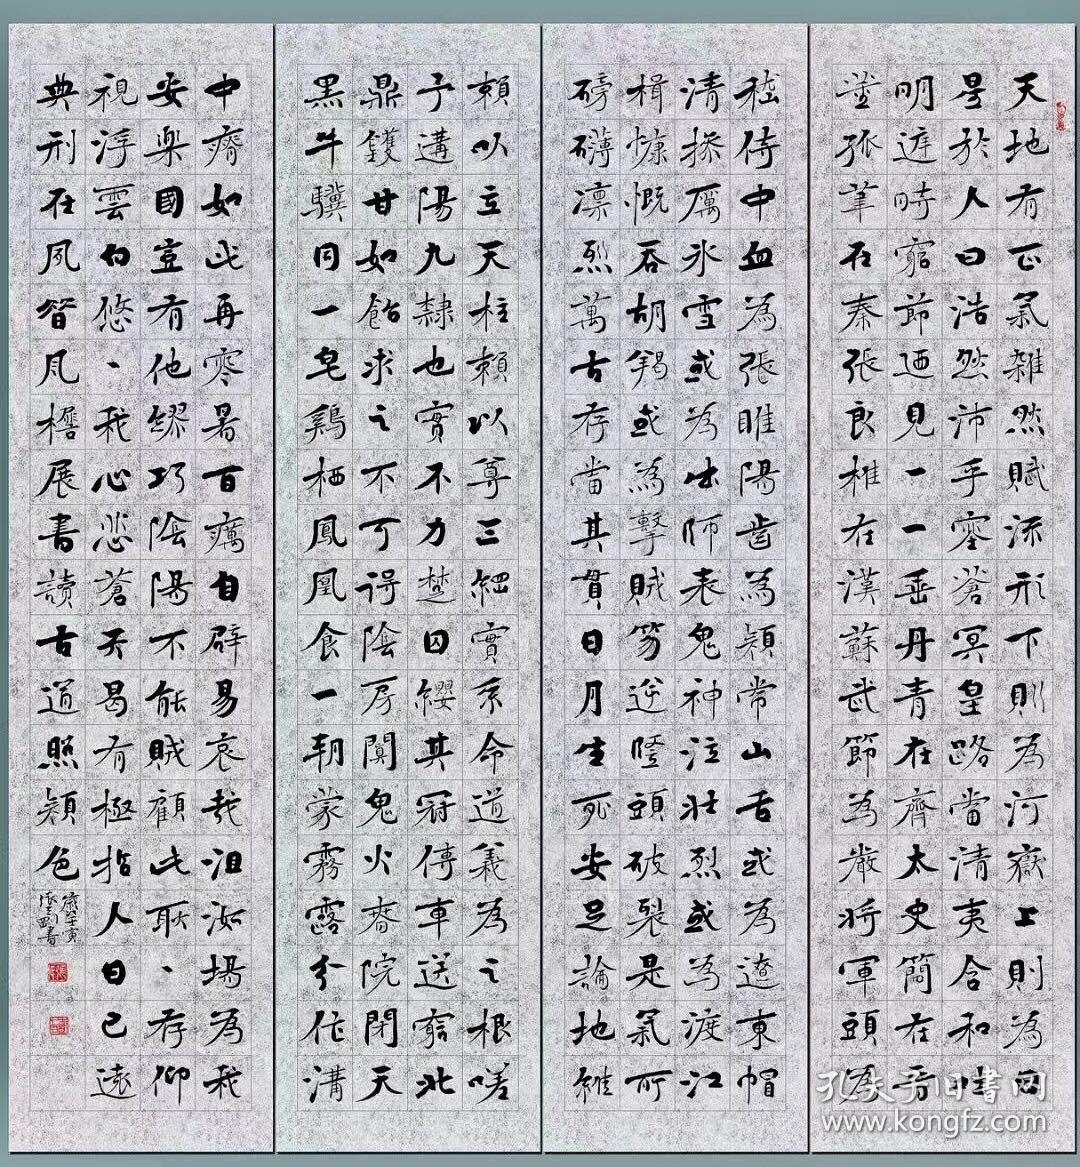 天地有正氣雜然賦流形下則為河嶽上則為日
星於人曰浩然沛乎塞蒼冥皇路當清夷含和吐
明庭時窮節迺見一一垂丹青在齊太史簡在晉
董狐筆在秦張良椎在漢蘇武節為嚴將軍頭為
嵇侍中血為張睢陽齒為顏常山舌或為遼東帽
清操厲冰雪或為出師表鬼神泣壯烈或為渡江
楫慷慨吞胡羯或為擊賊笏逆豎頭破裂是氣所
磅礴凜烈萬古存當其貫日月生死安足論地維
賴以立天柱賴以尊三綱實系命道義為之根嗟
予遘陽九隸也實不力楚囚纓其冠傳車送窮北
鼎鑊甘如飴求之不可得陰房闃鬼火春院閉天
黑牛驥同一皂鷄栖鳳凰食一朝蒙霧露分作溝
中瘠如此再寒暑百癘自辟易哀哉沮洳場為我
安樂國豈有他繆巧陰陽不能賊顧此耿、存仰
視浮雲白悠、我心悲蒼天曷有極指人日已遠
典刑在夙昔風檐展書讀古道照顏色
歲壬寅
書
孔夫子旧書网
www.kongfz.com